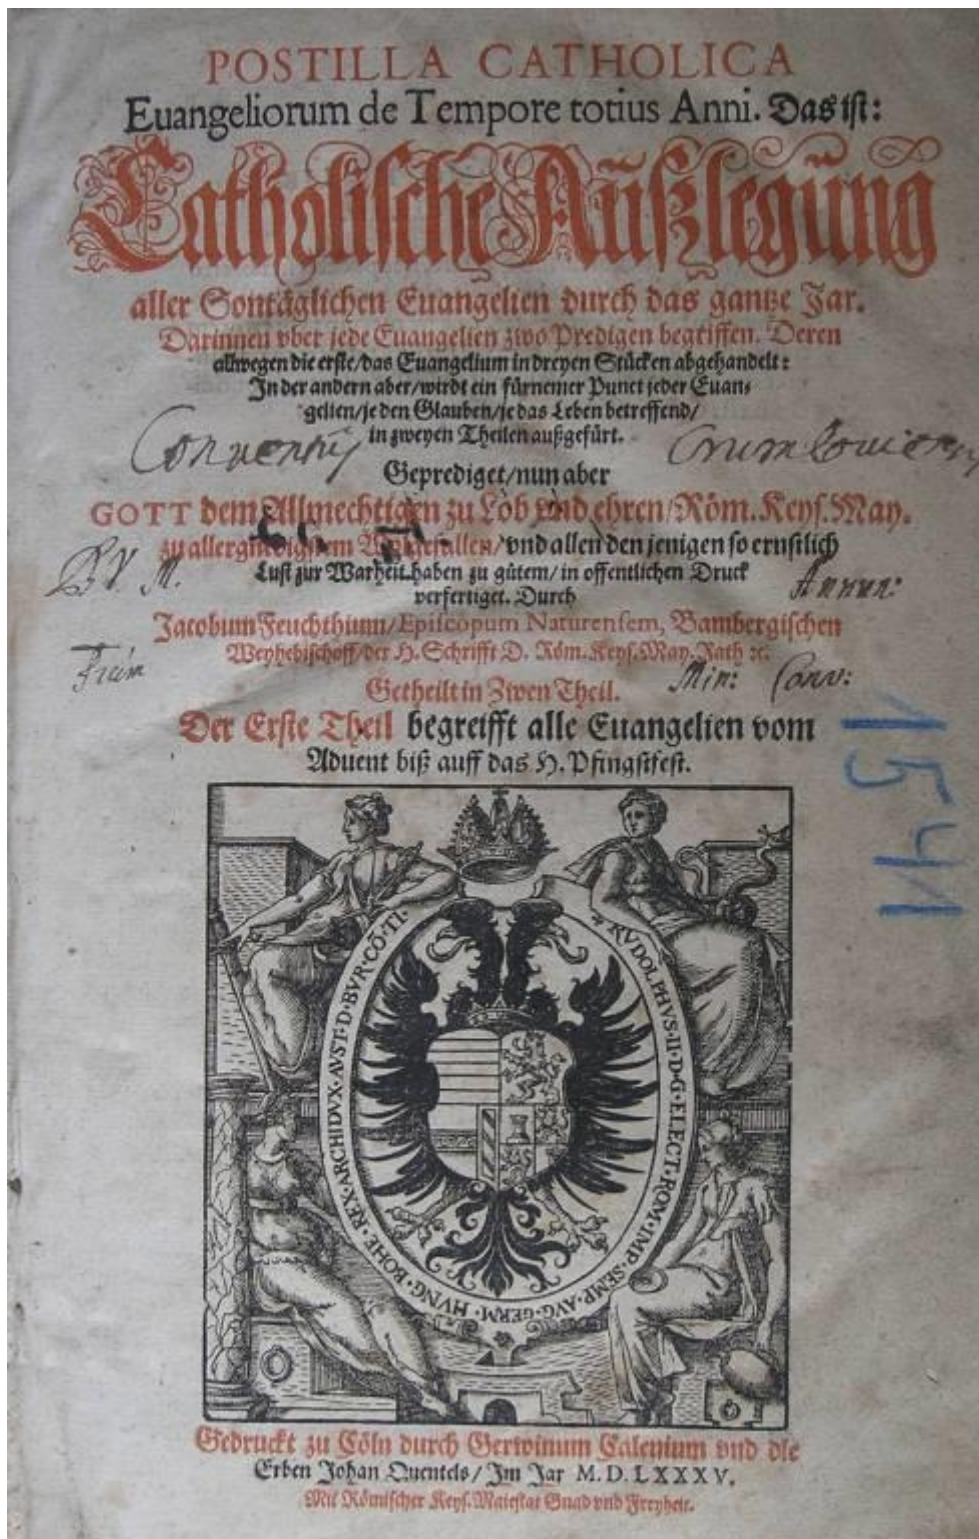 POSTILLA CATHOLICA
Euangeliorum de Tempore totius Anni. Das ist:
Catholische Außlegung
aller Sontäglichen Euangelien durch das gantze Jar.
Darinnen vber jede Euangelien zwo Predigen begriffen. Deren
allwegen die erste/das Euangelium in dreyen Stücken abgehandelt:
In der andern aber/wirdt ein fürnemer Punct jeder Euan-
gelien/je den Glauben/je das Leben betreffend/
in zweyen Theilen außgefürt.
Conventus Crumloviensis
Geprediget/nun aber
GOTT dem Allmechtigen zu Lob vnd ehren/Röm. Keys. May.
zu allergnedigstem Wolgefallen/vnd allen den jenigen so ernstlich
Lust zur Warheit haben zu gütem/in offentlichen Druck
verfertiget. Durch
B.V.M. Annun:
Jacobum Feuchthium/Episcopum Naturensem, Bambergischen
Weyhebischoff/der H. Schrifft D. Röm. Keys. May. Rath ꝛc.
Min: Conv:
Getheilt in Zwen Theil.
Der Erste Theil begreifft alle Euangelien vom
Aduent biß auff das H. Pfingstfest.
1541
RVDOLPHVS·II·D·G·ELECT·ROM·IMP·SEMP·AVG·GERM·HVNG·BOHE·REX·ARCHIDVX·AVST·D·BVR·CŌ·TI·
Gedruckt zu Cöln durch Gerwinum Calenium vnd die
Erben Johan Quentels/Im Jar M. D. LXXXV.
Mit Römischer Keys. Maiestat Gnad vnd Freyheit.